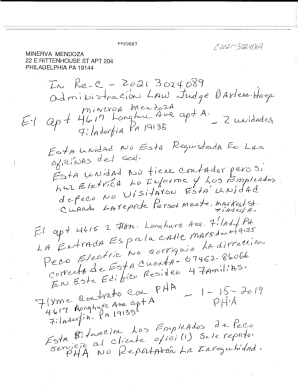 **00087
C-2021-3024089
MINERVA MENDOZA
22 E RITTENHOUSE ST APT 204
PHILADELPHIA PA 19144
In Re-C - 2021 3024089
administración LAW Judge DArlene Heep
Minerva Mendoza
El apt 4617 Longhure Ave apt A - 2 unidades
Filadelfia PA 19135
Esta unidad No Esta Registrada En Las
oficinas del
Esta unidad No tiene contador pero Si
Luz Eletrica Lo Informe y Los Empleados
de peco No Visitaron Esta unidad
Cuando La reporte Personalmente. Market St
El apt 4615 2 Longhure Ave. Filadelf/PA
LA Entrada Es por la calle Marsden 19135
Peco Electric No corrigio La dirección
correcta de Esta Cuenta - 07462-86066
En Este Edificio Residen 4 Familias.
Firme Contrato Con PHA - 1-15-2019
4617 Longhure Ave apt A PHA
Filadelfia. PA 19135
Esta Situación Los Empleados de Peco
servicio al cliente Se le reporto
PHA No Reportaron La Irregularidad.